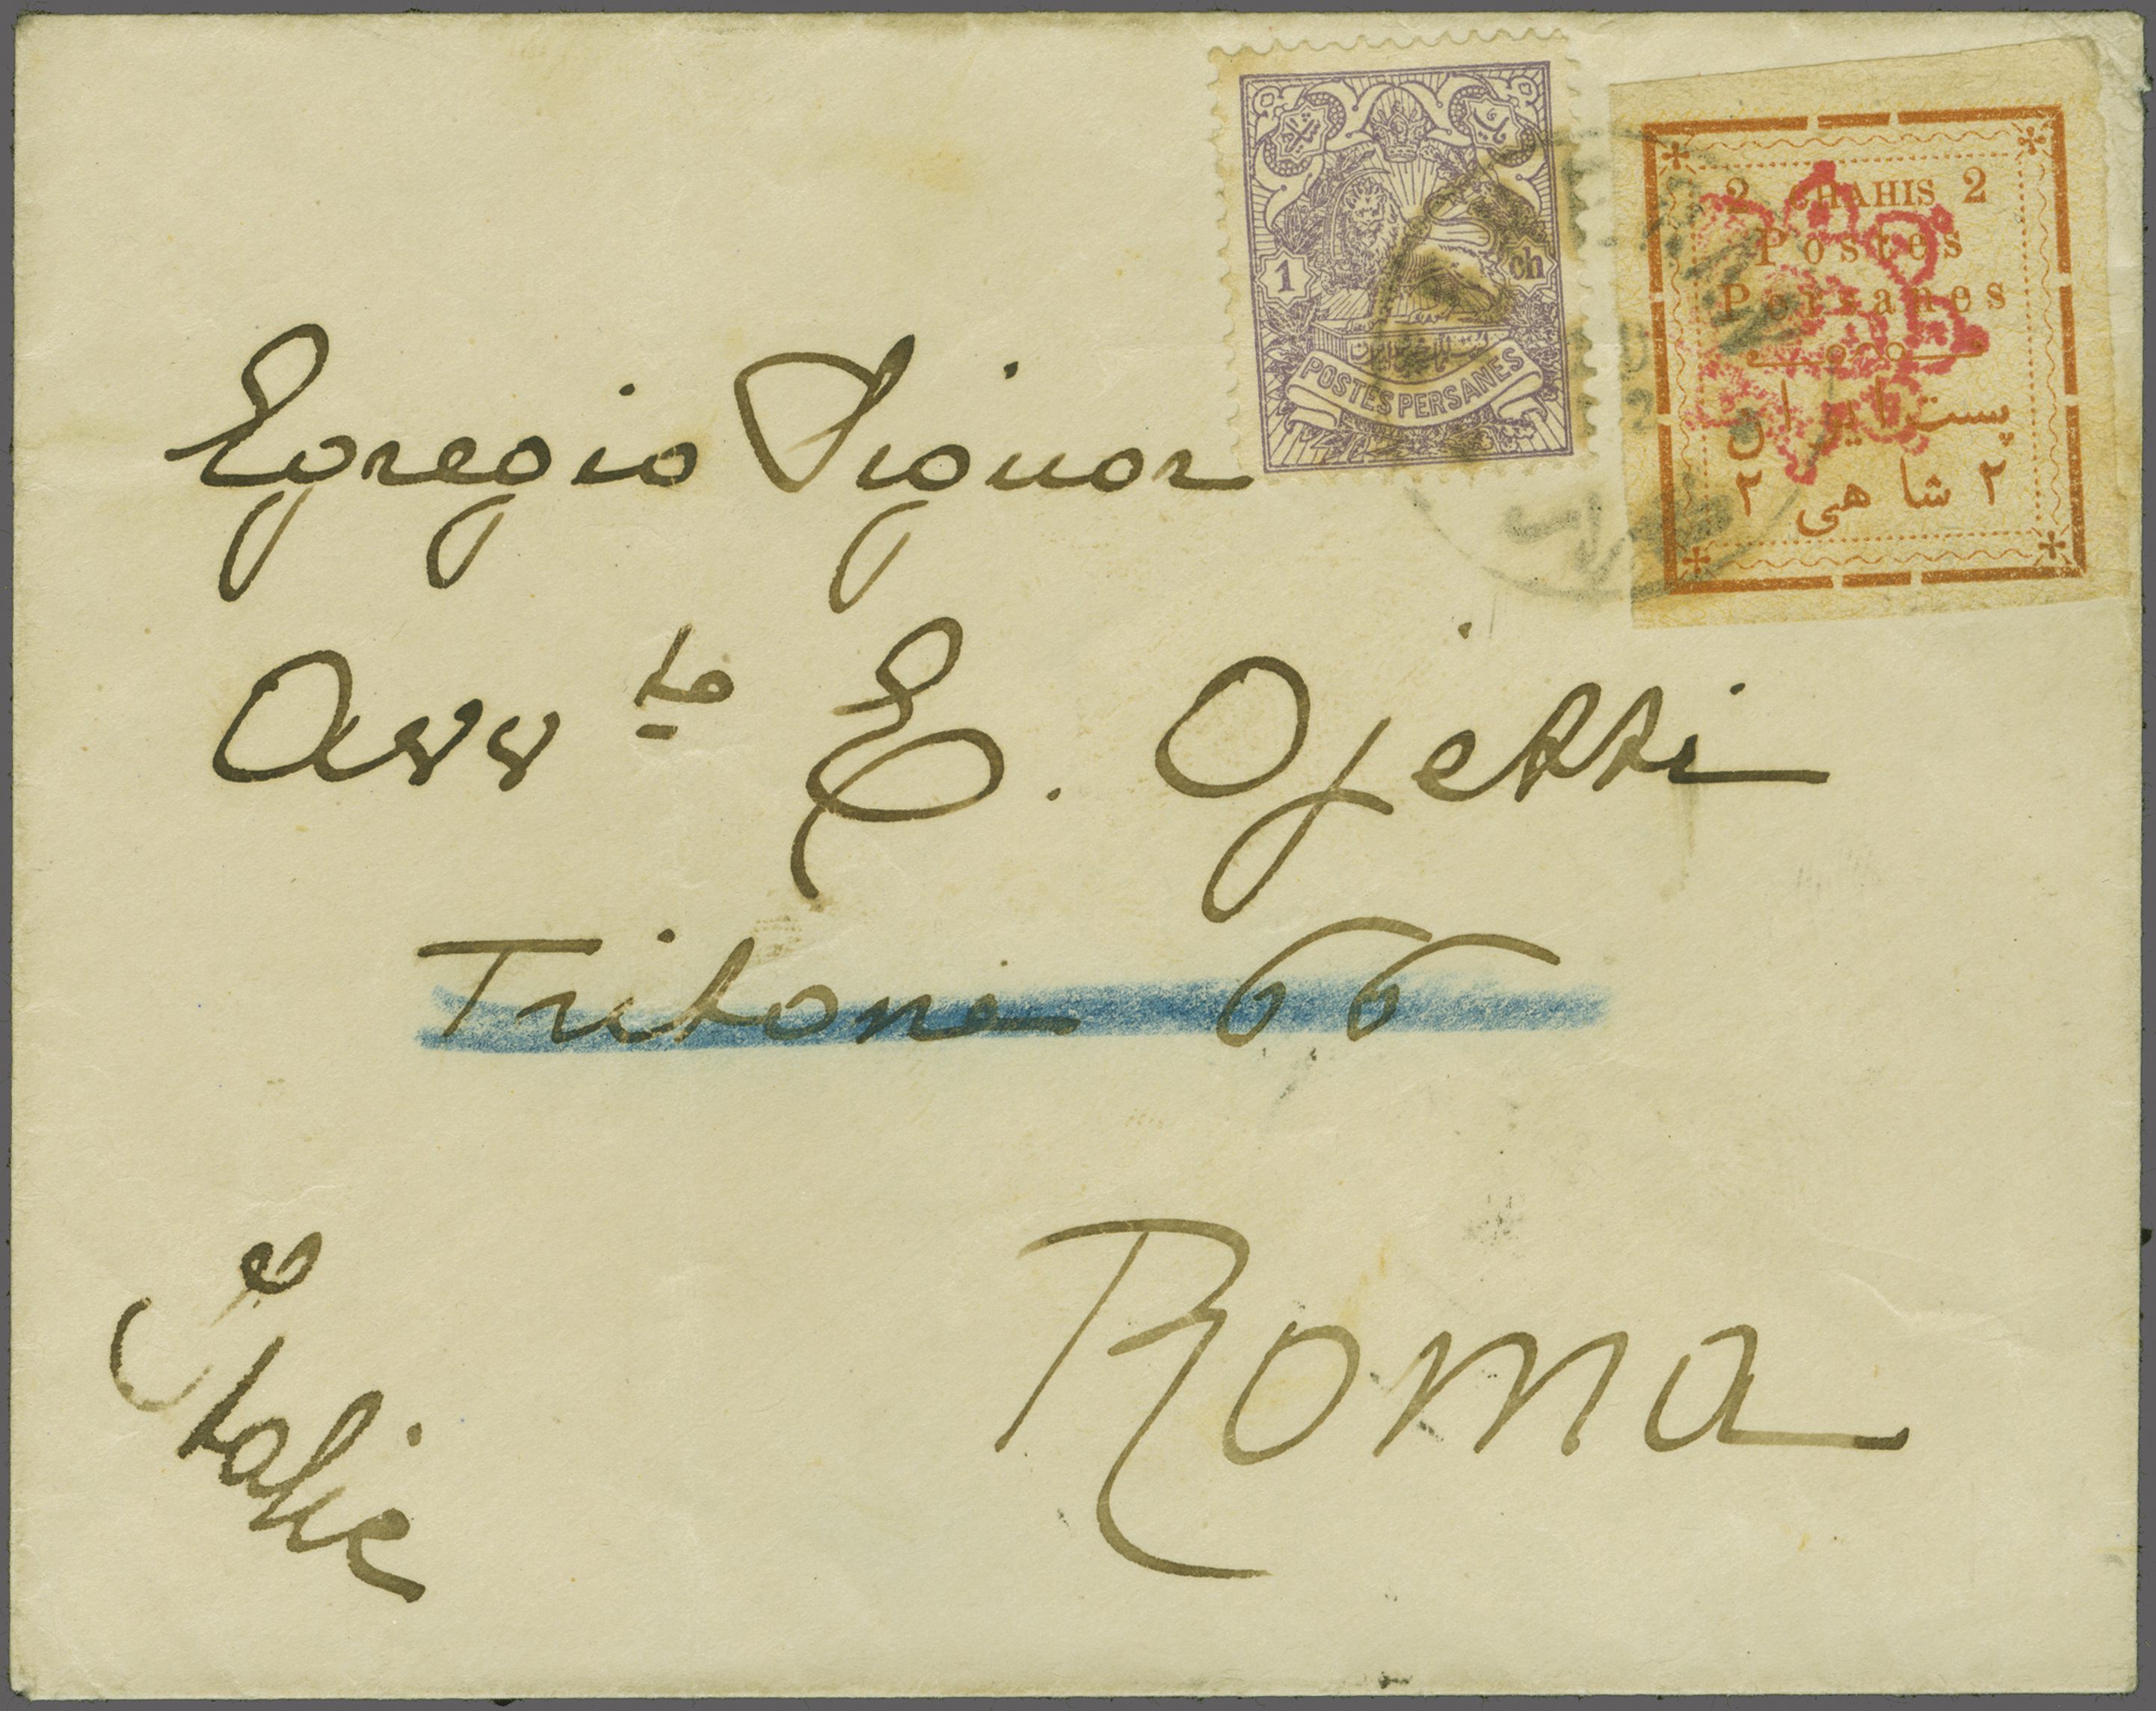 1 ch
POSTES PERSANES
2 CHAHIS 2
Postes
Persanes
پست ایران
۲ شاهی ۲
Egregio Signor
Avv<sup>to</sup> E. Ojetti
Tritone 66
Roma
Italie